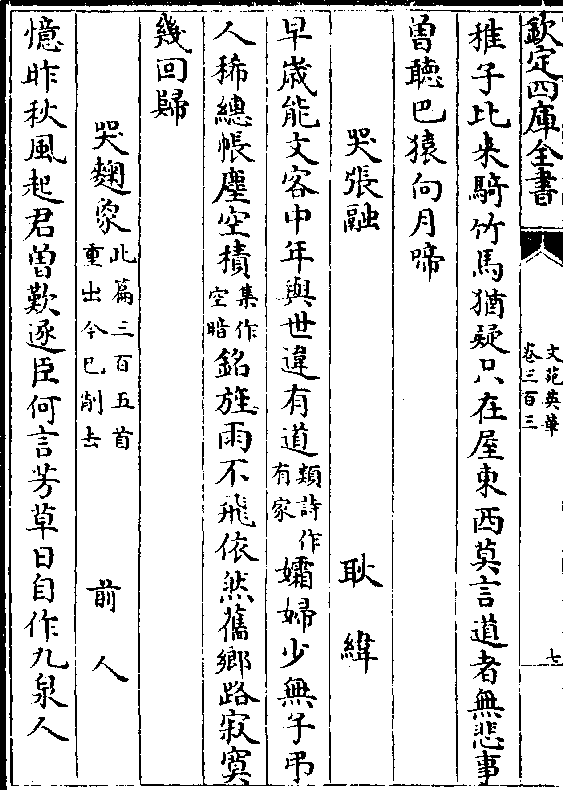 欽定四庫全書
文苑英華
卷三百三
七
稚子比来騎竹馬猶疑只在屋東西莫言道者無悲事
曽聽巴猿向月啼
哭張融
耿緯
早嵗能文客中年與世違有道類詩作有家孀婦少無子弔
人稀總帳塵空積集作空暗銘旌雨不飛依然舊鄉路寂寞
幾回歸
哭麴象此篇三百五首重出今已削去
前人
憶昨秋風起君曽歎逐臣何言芳草日自作九泉人